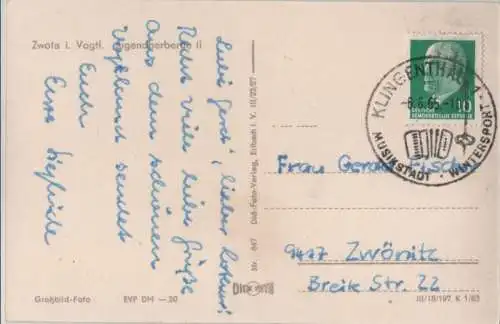 Zwota i. Vogtl. Jugendherberge II
Liebe Gerda, lieber
Recht viele liebe Grüße
aus dem schönen
Vogtland sendet
Euch
Eure Sieglinde
Großbild-Foto EVP DM —.20
Nr. 647 Dick-Foto-Verlag, Erlbach i. V. III/23/27
KLINGENTHAL
-8.6.65.-1
MUSIKSTADT WINTERSPORT
10
DEUTSCHE
DEMOKRATISCHE REPUBLIK
Frau Gerda
9417 Zwönitz
Breite Str. 22
III/18/197 K 1/63